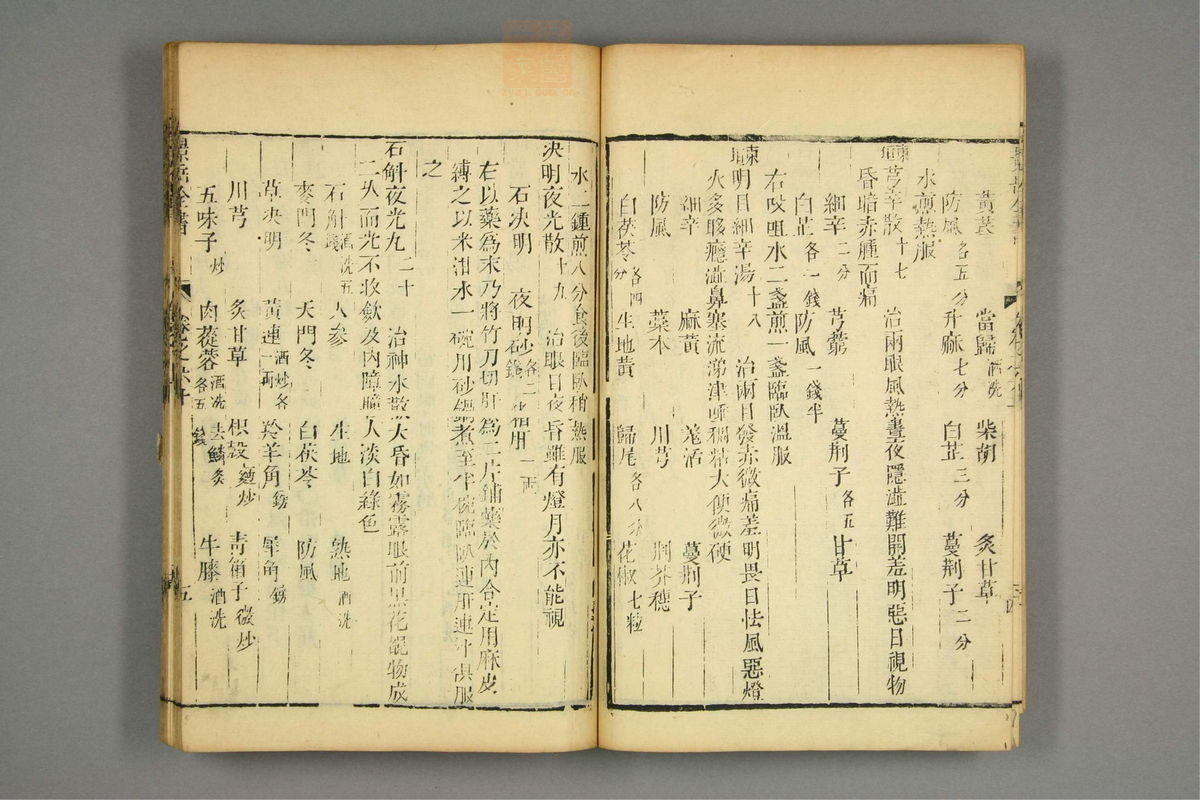 黃芪 當歸酒洗 柴胡 炙甘草
防風各五分 升麻七分 白芷三分 蔓荆子二分
水煎熱服
東垣芎辛散十七 治兩眼風熱晝夜隱澁難開羞明惡日視物
昏暗赤腫而痛
細辛二分 芎藭 蔓荆子各五 甘草
白芷各一錢 防風一錢半
右㕮咀水二盞煎一盞臨臥溫服
東垣明目細辛湯十八 治兩目發赤微痛羞明畏日怯風惡燈
火多眵癮澁鼻塞流涕津唾稠粘大便微硬
細辛 麻黃 羌活 蔓荆子
防風 藁本 川芎 荆芥穗
白茯苓各四分 生地黃 歸尾各八分 花椒七粒
水一鍾煎八分食後臨臥稍熱服
決明夜光散十九 治眼目夜昏雖有燈月亦不能視
石決明 夜明砂各二錢 一兩
右以藥為末乃將竹刀切肝為二片鋪藥於內合定用麻皮
縛之以米泔水一碗用砂鍋煮至半碗臨臥連肝連汁俱服
之
石斛夜光丸二十 治神水散大昏如霧露眼前黑花視物成
二久而光不收斂及內障瞳人淡白綠色
石斛酒洗五錢 人參 生地 熟地酒洗
麥門冬 天門冬 白茯苓 防風
草決明 黃連酒炒各一兩 羚羊角鎊 犀角鎊
川芎 炙甘草 枳殼麪炒 青箱子微炒
五味子炒 肉蓯蓉酒洗去鱗炙各五錢 牛膝酒洗
景岳全書 卷之六十 五